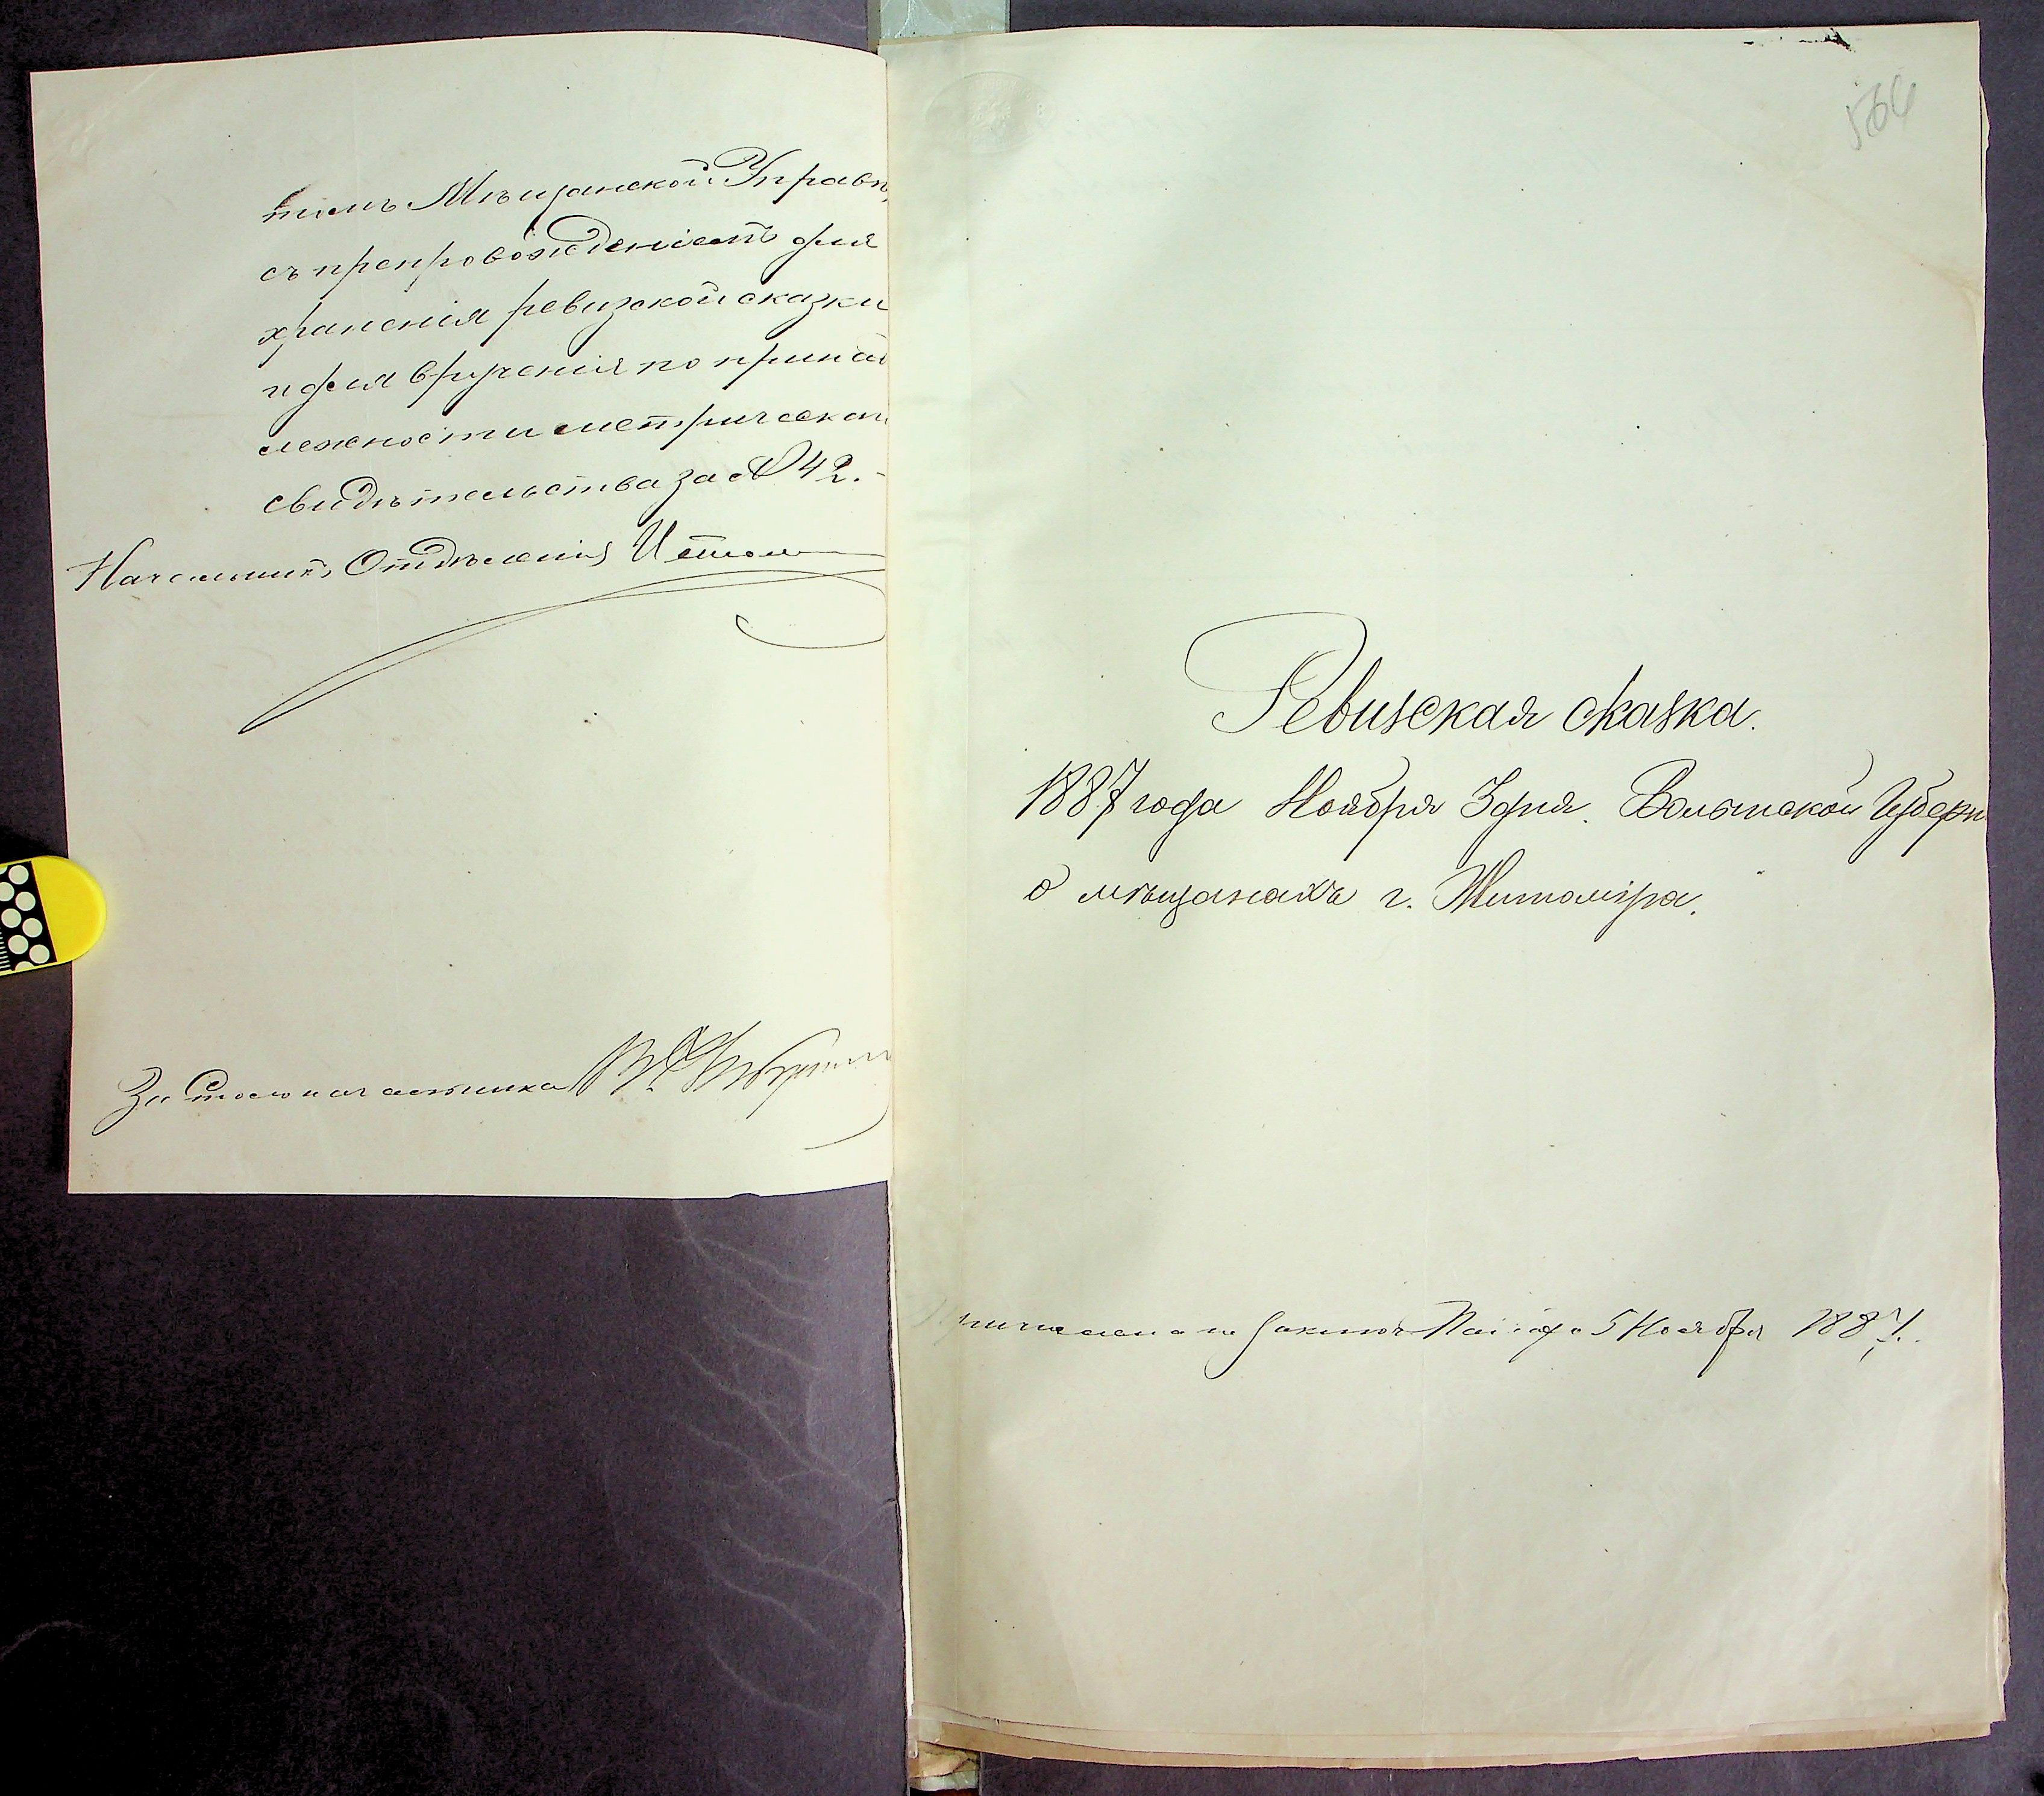 тимъ Мѣщанской Управѣ,
съ препровожденіемъ для
храненія ревизской сказки
и для врученія по принад
лежности метрическаго
свидѣтельства за № 42.-
Начальникъ Отдѣленія
За Столоначальника
566
Ревизская сказка.
1887 года Ноября 3 дня. Волынской Губерн
о мѣщанахъ г. Житомира.
5 Ноября 1887.